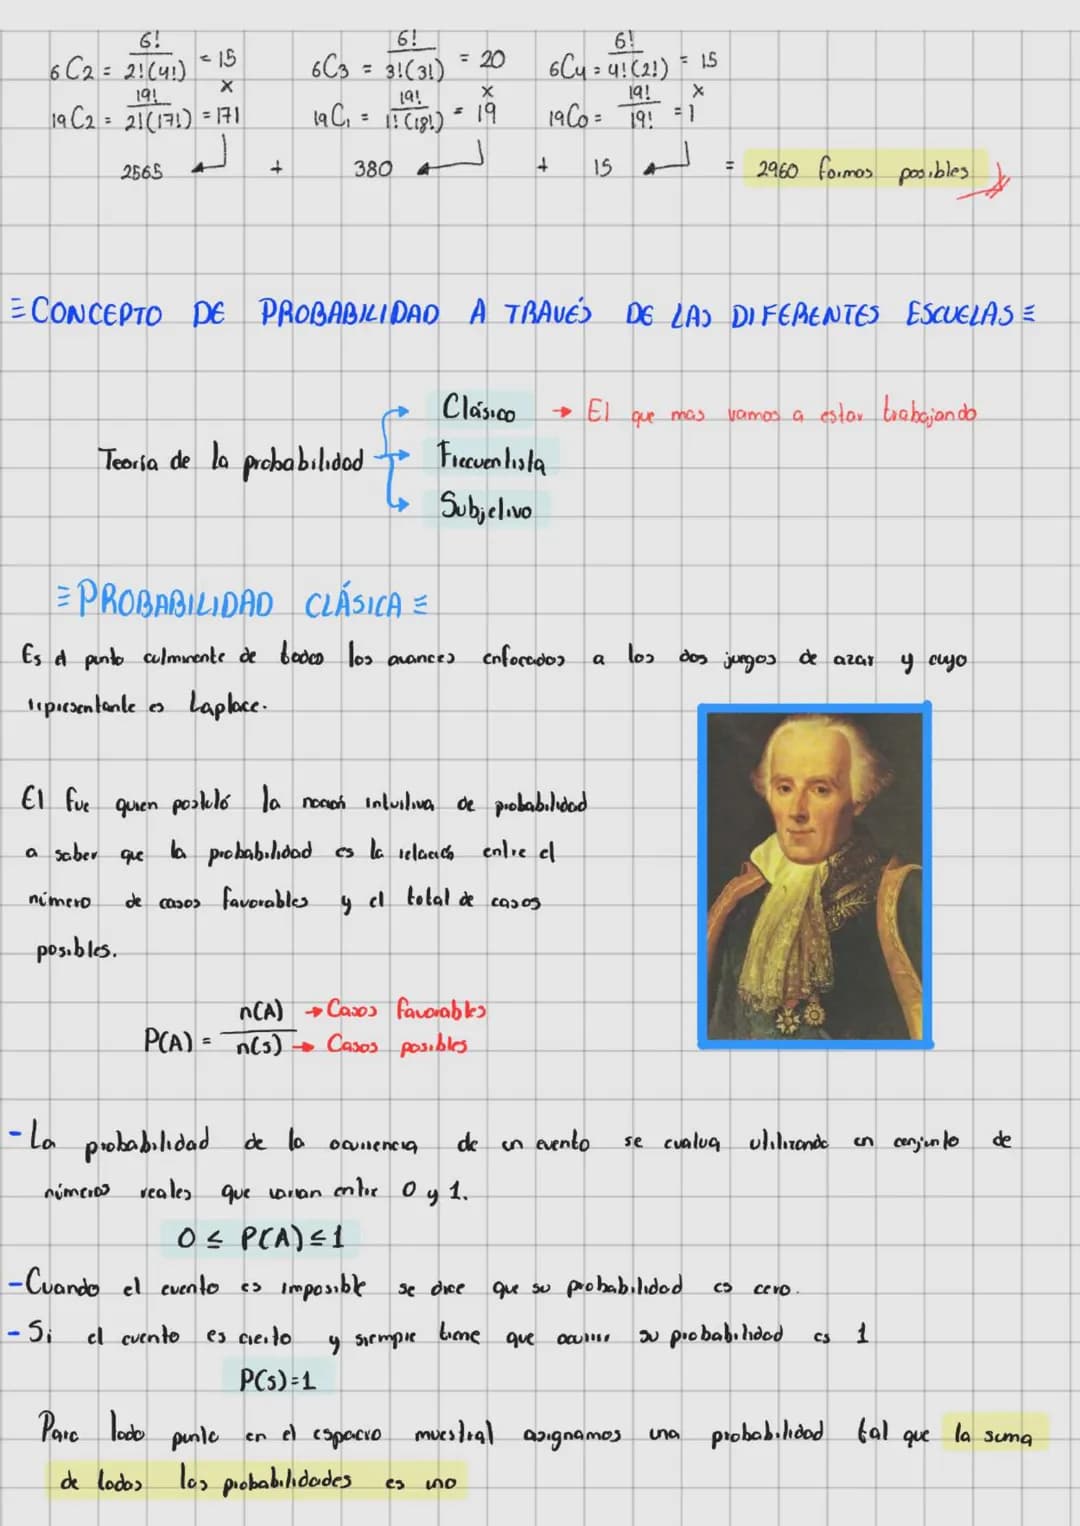 6C2 = 6!/2!(4!) = 15   6C3 = 6!/3!(3!) = 20   6C4 = 6!/4!(2!) = 15
x   x   x
19C2 = 19!/2!(17!) = 171   19C1 = 19!/1!(18!) = 19   19C0 = 19!/19! = 1
2565 + 380 + 15 = 2960 formas posibles
≡ CONCEPTO DE PROBABILIDAD A TRAVÉS DE LAS DIFERENTES ESCUELAS ≡
Clásico → El que mas vamos a estar trabajando
Teoría de la probabilidad
Frecuentista
Subjetivo
≡ PROBABILIDAD CLÁSICA ≡
Es el punto culminante de todos los avances enfocados a los dos juegos de azar y cuyo
representante es Laplace.
El fue quien postuló la noción intuitiva de probabilidad
a saber que la probabilidad es la relación entre el
número de casos favorables y el total de casos
posibles.
P(A) = n(A)/n(s)
→ Casos favorables
→ Casos posibles
- La probabilidad de la ocurrencia de un evento se evalua utilizando un conjunto de
números reales que varian entre 0 y 1.
0 ≤ P(A) ≤ 1
- Cuando el evento es imposible se dice que su probabilidad es cero.
- Si el evento es cierto y siempre tiene que ocurrir su probabilidad es 1
P(s)=1
Para todo punto en el espacio muestral asignamos una probabilidad tal que la suma
de todas las probabilidades es uno